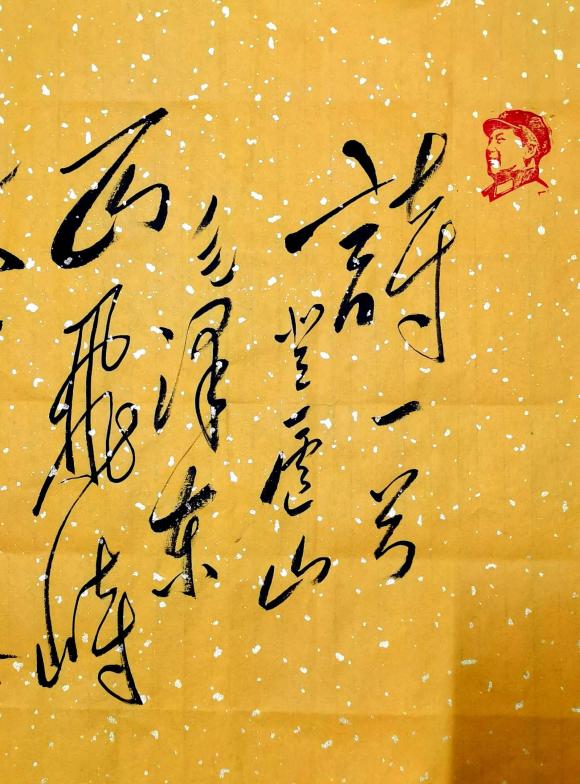 詩一首
登廬山
毛泽东
一山飛峙